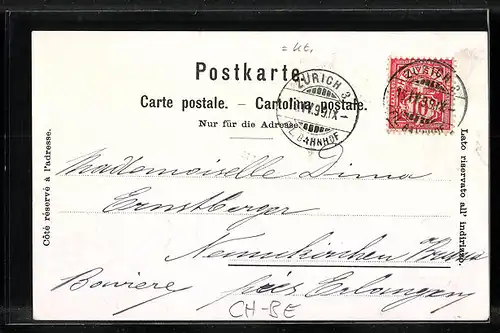 = Kt.
Postkarte.
Carte postale. — Cartolina postale.
Nur für die Adresse.
ZÜRICH 3
BAHNHOF
ZÜRICH 3
BAHNHOF
10
Côté réservé à l'adresse.
Lato riservato all' indirizzo.
Mademoiselle Dima
Ernstberger
Neunkirchen
Baviere près Erlangen
CH-BE